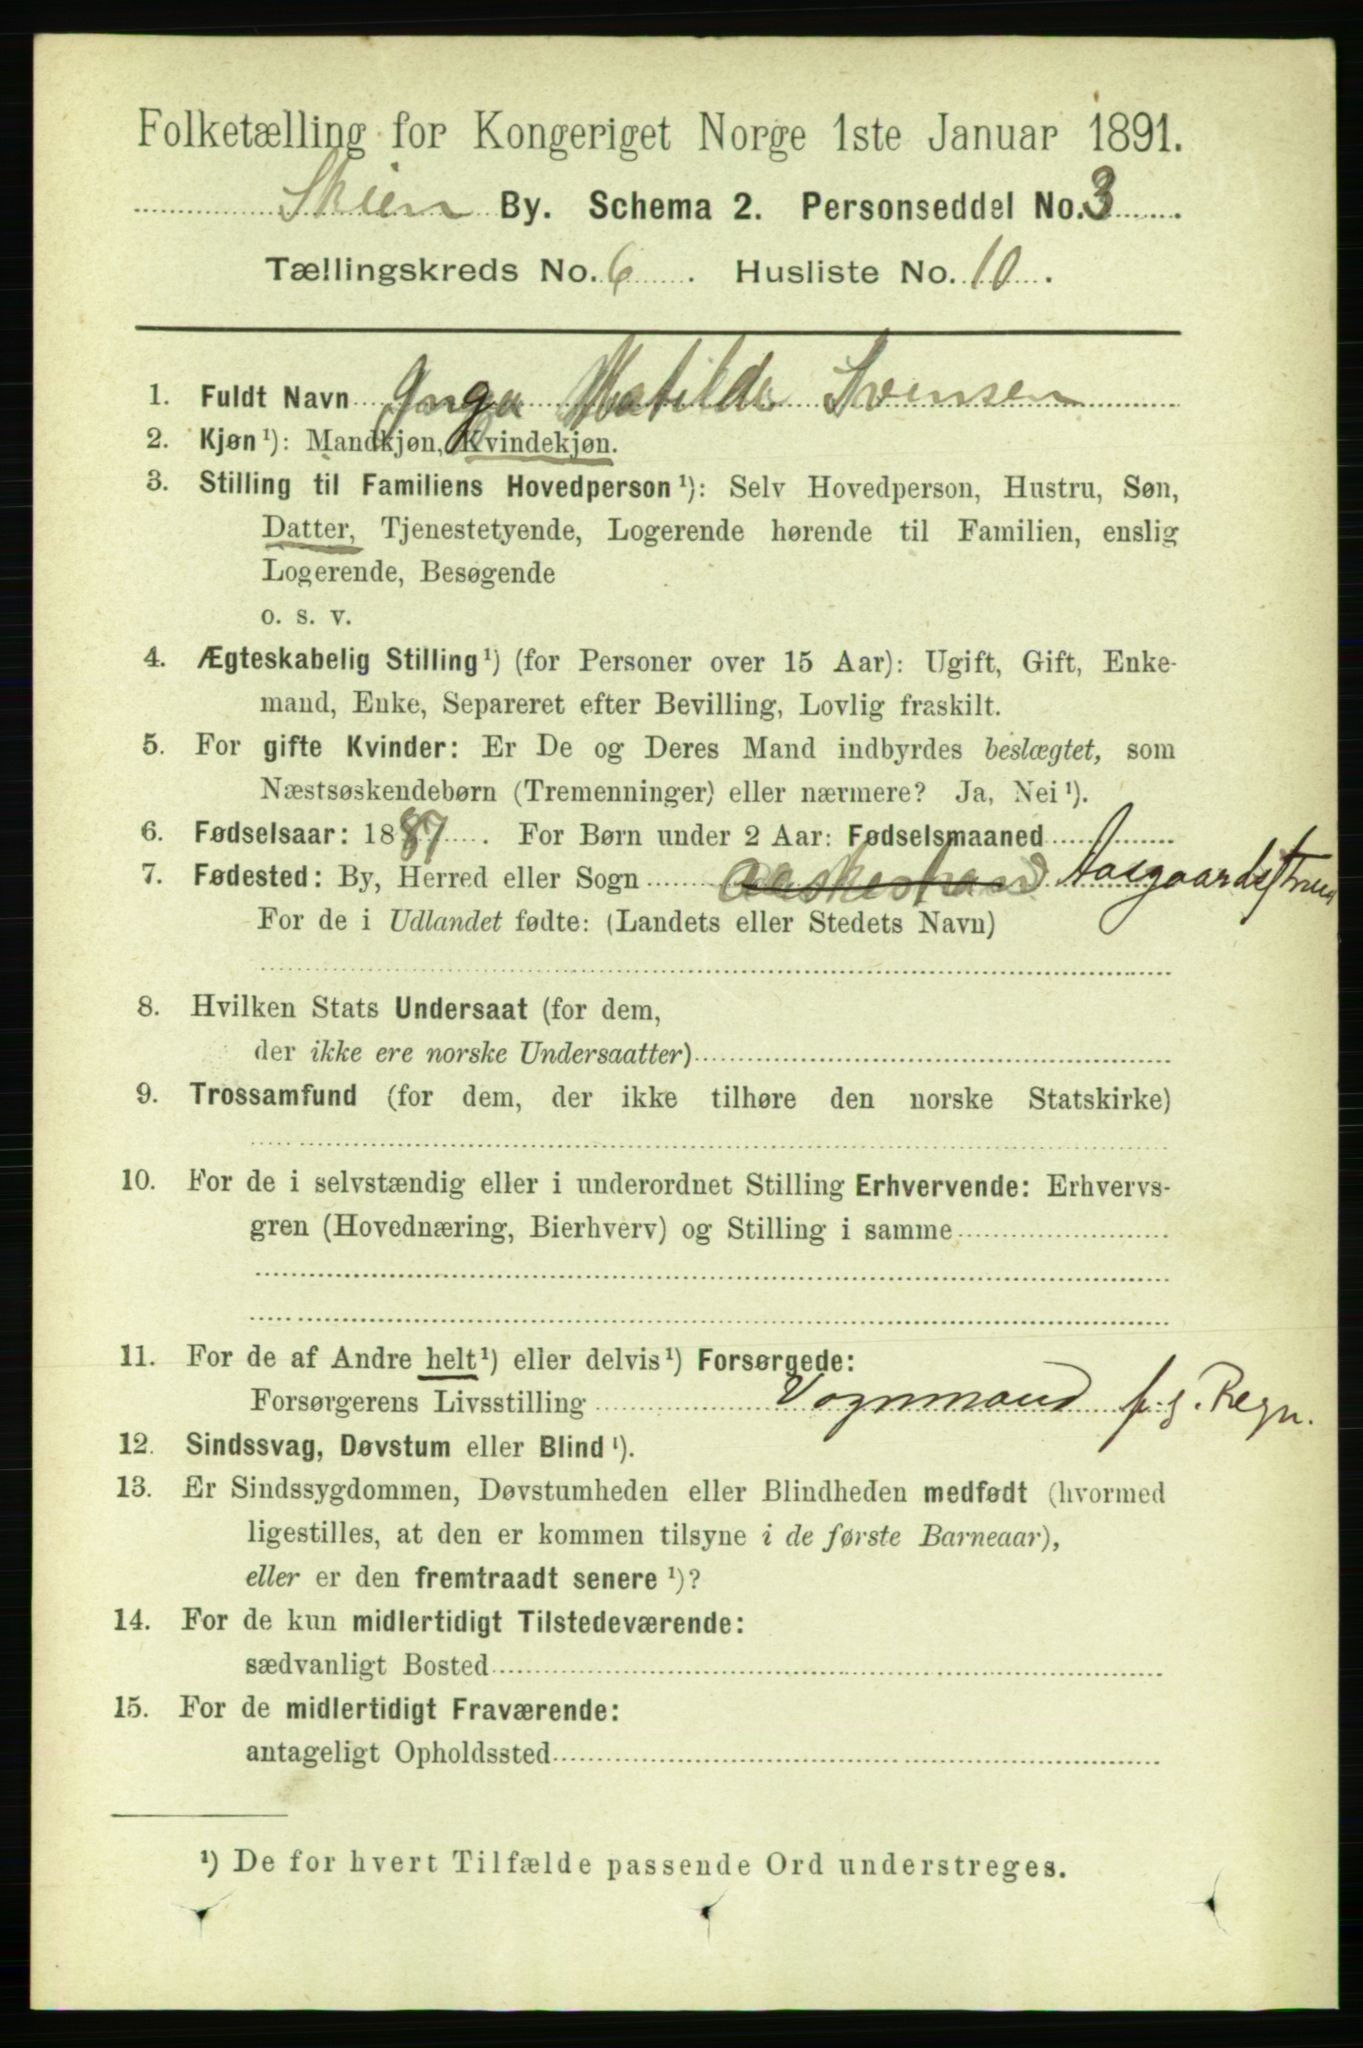 Folketælling for Kongeriget Norge 1ste Januar 1891.
Skien By. Schema 2. Personseddel No. 3.
Tællingskreds No. 6. Husliste No. 10.
1. Fuldt Navn Inga Matilde Svensen
2. Kjøn ¹): Mandkjøn, Kvindekjøn.
3. Stilling til Familiens Hovedperson ¹): Selv Hovedperson, Hustru, Søn,
Datter, Tjenestetyende, Logerende hørende til Familien, enslig
Logerende, Besøgende
o. s. v.
4. Ægteskabelig Stilling ¹) (for Personer over 15 Aar): Ugift, Gift, Enke-
mand, Enke, Separeret efter Bevilling, Lovlig fraskilt.
5. For gifte Kvinder: Er De og Deres Mand indbyrdes beslægtet, som
Næstsøskendebørn (Tremenninger) eller nærmere? Ja, Nei ¹).
6. Fødselsaar: 1887. For Børn under 2 Aar: Fødselsmaaned
7. Fødested: By, Herred eller Sogn Aaskestrand Aasgaardstrand
For de i Udlandet fødte: (Landets eller Stedets Navn)
8. Hvilken Stats Undersaat (for dem,
der ikke ere norske Undersaatter)
9. Trossamfund (for dem, der ikke tilhøre den norske Statskirke)
10. For de i selvstændig eller i underordnet Stilling Erhvervende: Erhvervs-
gren (Hovednæring, Bierhverv) og Stilling i samme
11. For de af Andre helt ¹) eller delvis ¹) Forsørgede:
Forsørgerens Livsstilling Vognmand f. e. Regn.
12. Sindssvag, Døvstum eller Blind ¹).
13. Er Sindssygdommen, Døvstumheden eller Blindheden medfødt (hvormed
ligestilles, at den er kommen tilsyne i de første Barneaar),
eller er den fremtraadt senere ¹)?
14. For de kun midlertidigt Tilstedeværende:
sædvanligt Bosted
15. For de midlertidigt Fraværende:
antageligt Opholdssted
¹) De for hvert Tilfælde passende Ord understreges.